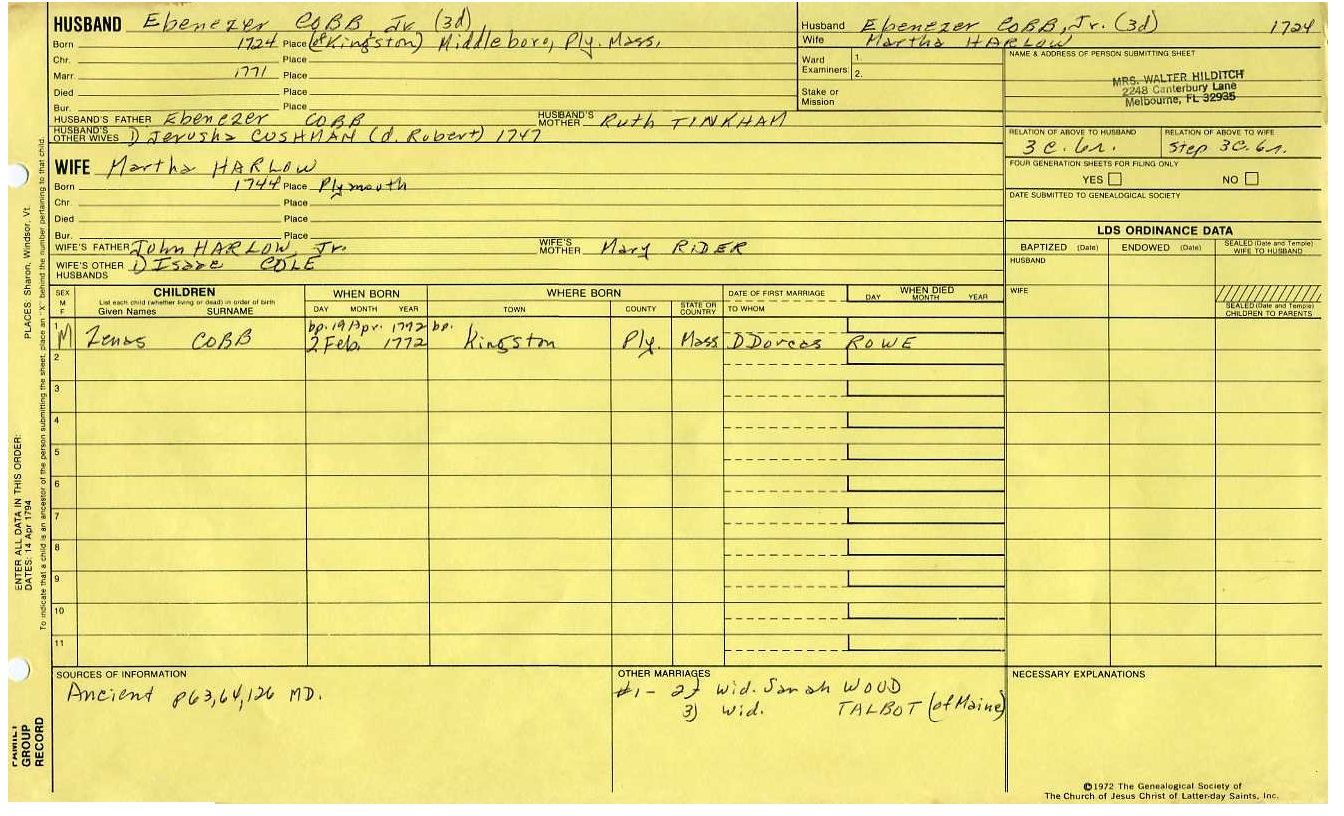 HUSBAND Ebenezer COBB Jr. (3d)
Born 1724 Place (of Kingston) Middleboro, Ply. Mass.
Chr. Place
Marr. 1771 Place
Died Place
Bur. Place
HUSBAND'S FATHER Ebenezer COBB HUSBAND'S MOTHER Ruth TINKHAM
HUSBAND'S OTHER WIVES 1) Jerusha CUSHMAN (d. Robert) 1747
WIFE Martha HARLOW
Born 1744 Place Plymouth
Chr. Place
Died Place
Bur. Place
WIFE'S FATHER John HARLOW, Jr. WIFE'S MOTHER Mary RIDER
WIFE'S OTHER HUSBANDS 1) Isaac COLE
Husband Ebenezer COBB, Jr. (3d) 1724
Wife Martha HARLOW
Ward Examiners: 1.
2.
Stake or Mission
NAME & ADDRESS OF PERSON SUBMITTING SHEET
MRS. WALTER HILDITCH
2248 Canterbury Lane
Melbourne, FL 32935
RELATION OF ABOVE TO HUSBAND RELATION OF ABOVE TO WIFE
3 C. 6r. Step 3C. 6r.
FOUR GENERATION SHEETS FOR FILING ONLY
YES NO
DATE SUBMITTED TO GENEALOGICAL SOCIETY
LDS ORDINANCE DATA
BAPTIZED (Date) ENDOWED (Date) SEALED (Date and Temple) WIFE TO HUSBAND
HUSBAND
WIFE
SEALED (Date and Temple) CHILDREN TO PARENTS
SEX M F
CHILDREN
List each child (whether living or dead) in order of birth
Given Names SURNAME
WHEN BORN
DAY MONTH YEAR
WHERE BORN
TOWN COUNTY STATE OR COUNTRY
DATE OF FIRST MARRIAGE
TO WHOM
WHEN DIED
DAY MONTH YEAR
1 bp. 19 Apr. 1772 bp.
M Zenas COBB 2 Feb. 1772 Kingston Ply. Mass 1) Dorcas ROWE
2
3
4
5
6
7
8
9
10
11
SOURCES OF INFORMATION
Ancient p63,64,126 MD.
OTHER MARRIAGES
#1- 2) wid. Sarah WOUD
3) wid. TALBOT (of Maine)
NECESSARY EXPLANATIONS
©1972 The Genealogical Society of
The Church of Jesus Christ of Latter-day Saints, Inc.
PLACES: Sharon, Windsor, Vt.
To indicate that a child is an ancestor of the person submitting the sheet, place an "X" behind the number pertaining to that child.
ENTER ALL DATA IN THIS ORDER:
DATES: 14 Apr 1794
FAMILY
GROUP
RECORD